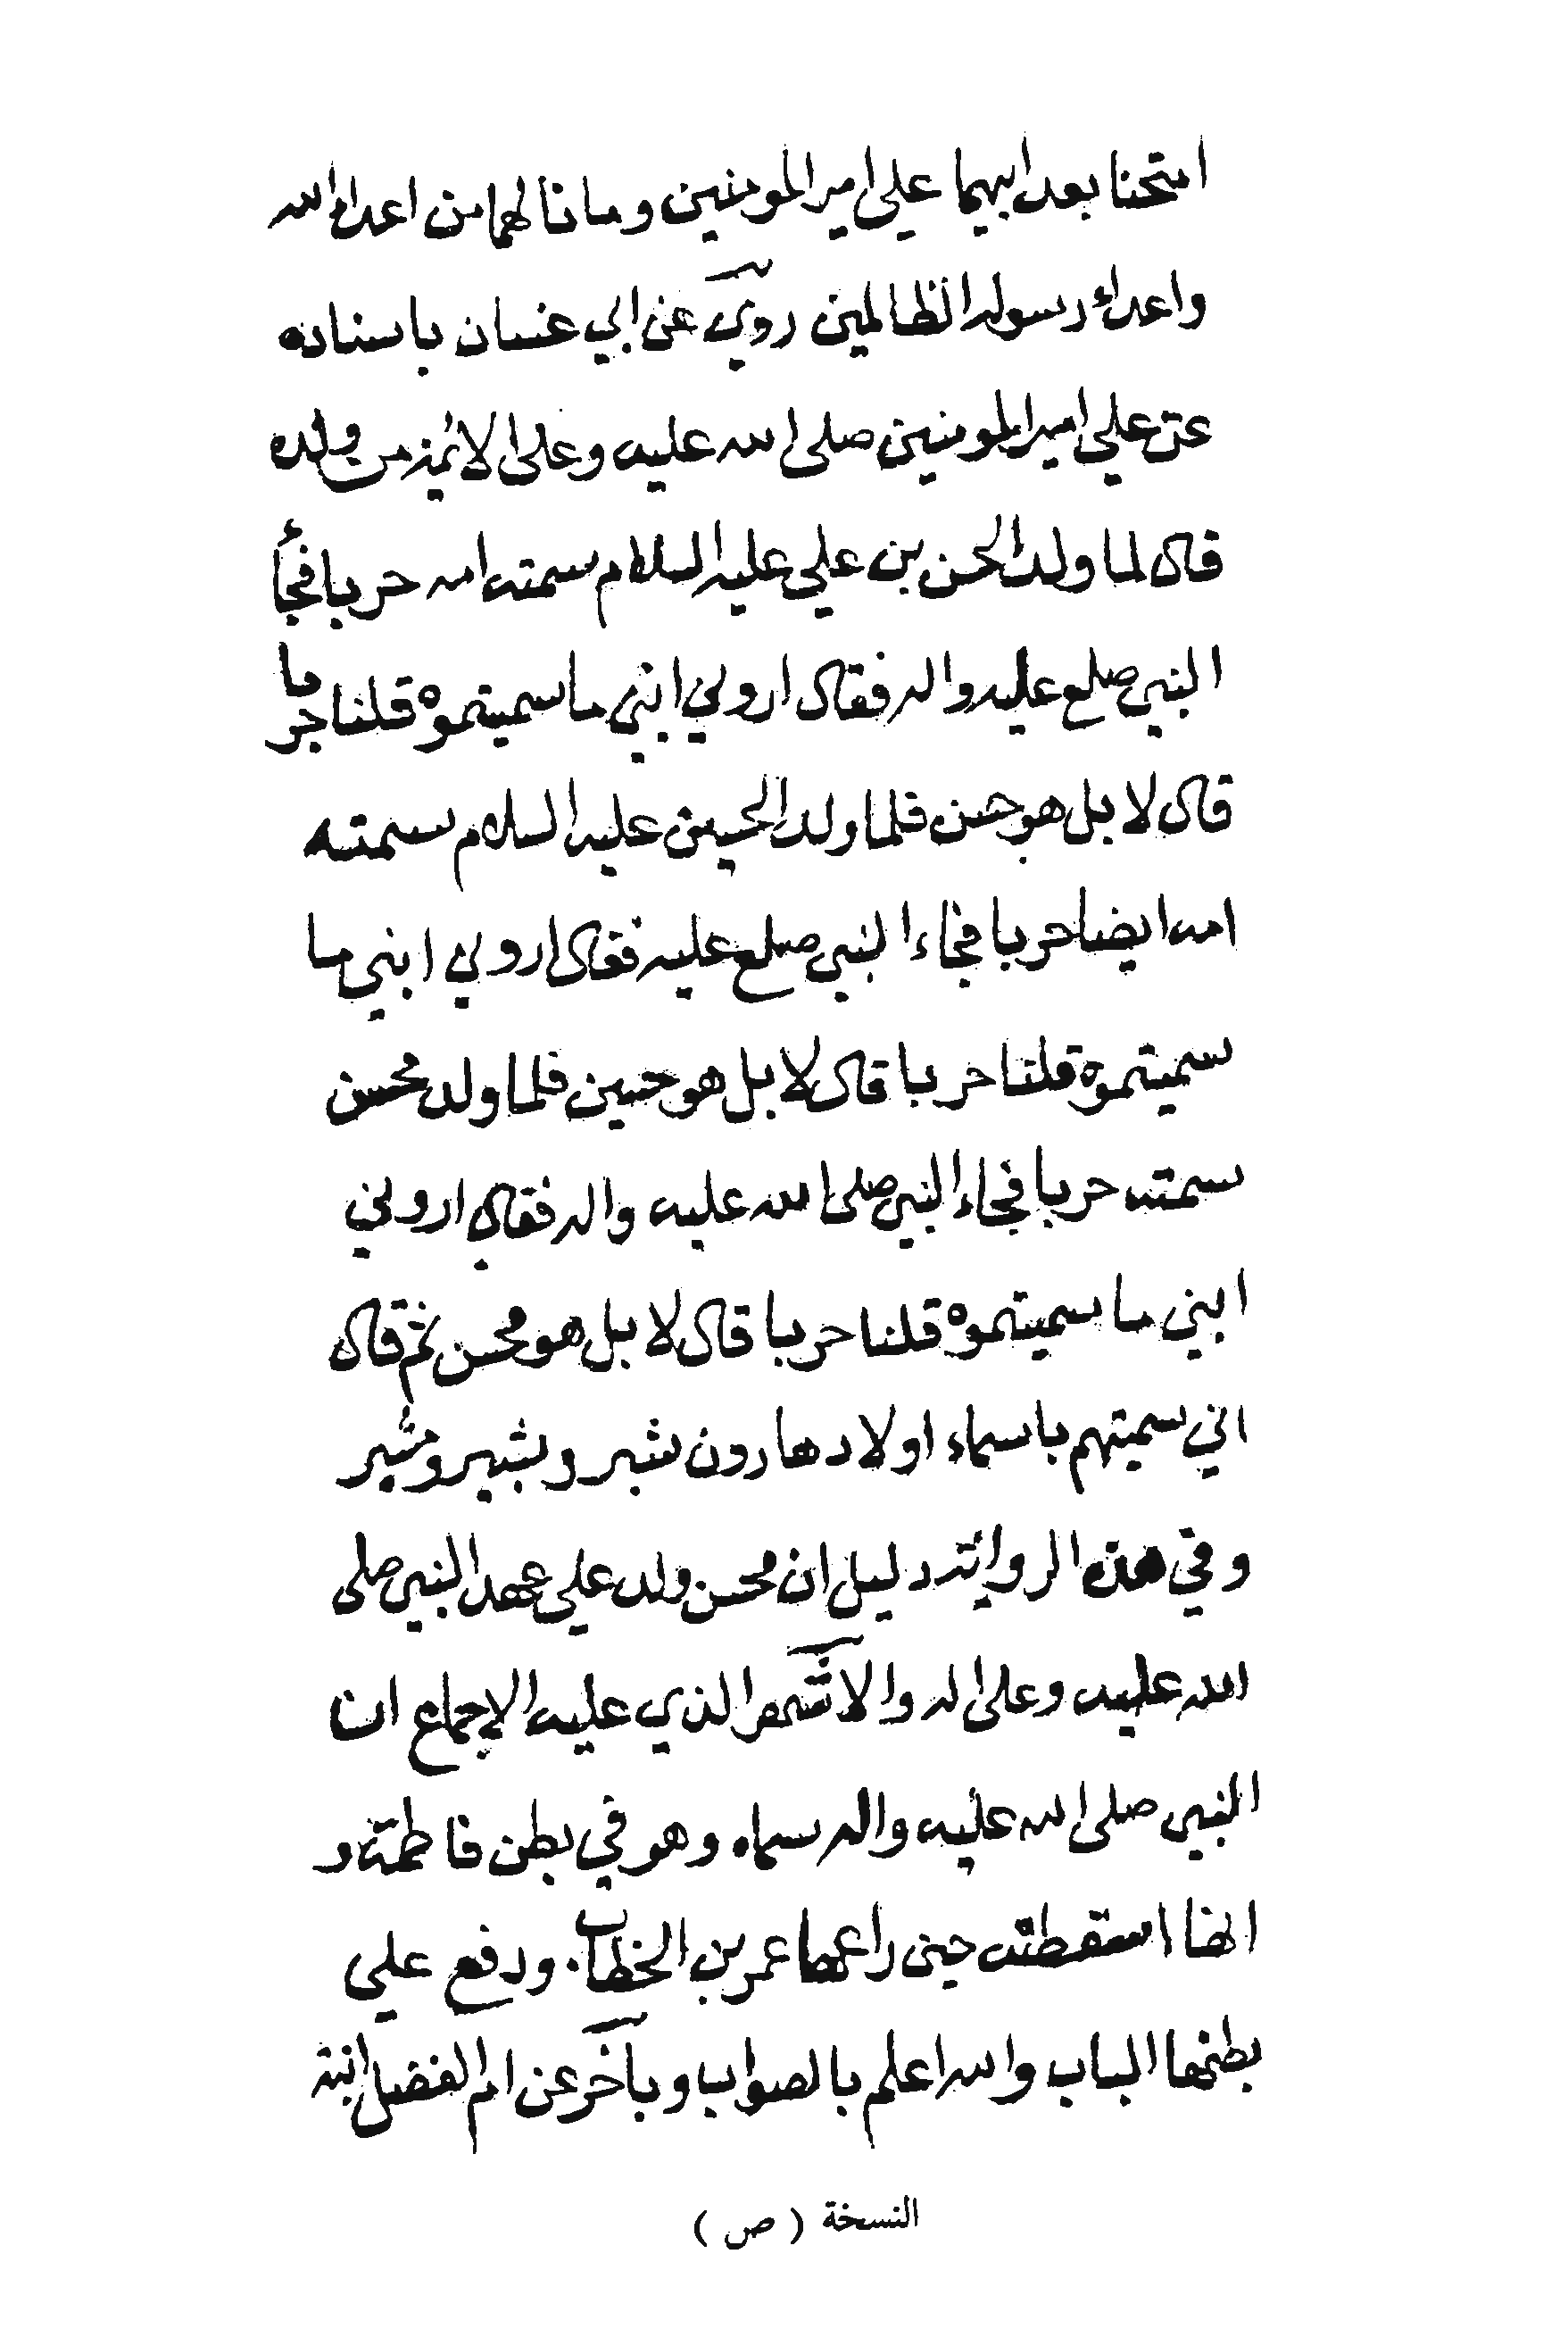 امتحنا بعد ابيهما علي امير المومنين وما نالهما من اعداء الله
واعداء رسوله الظالمين روي عن ابي غسان باسناده
عن علي امير المومنين صلى الله عليه وعلى الائمة من ولده
قال لما ولد الحسن بن علي عليه السلام سمته امه حربا فجأ
النبي صلع عليه واله فقال اروني ابني ما سميتموه قلنا حربا
قال لا بل هو حسن فلما ولد الحسين عليه السلام سمته
امه ايضا حربا فجاء النبي صلع عليه فقال اروني ابني ما
سميتموه قلنا حربا قال لا بل هو حسين فلما ولد محسن
سمته حربا فجاء النبي صلى الله عليه واله فقال اروني
ابني ما سميتموه قلنا حربا قال لا بل هو محسن ثم قال
اني سميتهم باسماء اولاد هارون شبر وبشير ومشبر
وفي هذه الرواية دليل ان محسن ولد على عهد النبي صلى
الله عليه وعلى اله والاشهر الذي عليه الاجماع ان
النبي صلى الله عليه واله سماه وهو في بطن فاطمة و
انها اسقطته حين راعها عمر بن الخطاب. ودفع علي
بطنها الباب والله اعلم بالصواب وبآخر عن ام الفضل ابنة
النسخة ( ص )